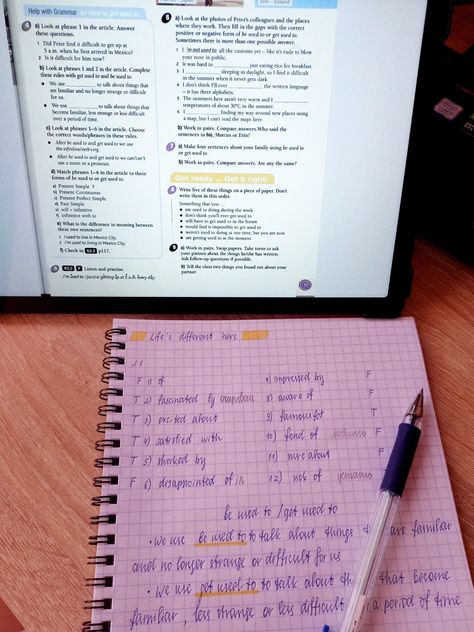 Help with Grammar be used to, get used to
a) Look at phrase 1 in the article. Answer
these questions.
1 Did Peter find it difficult to get up at
5 a.m. when he first arrived in Mexico?
2 Is it difficult for him now?
b) Look at phrases 1 and 2 in the article. Complete
these rules with get used to and be used to.
● We use ________ to talk about things that
are familiar and no longer strange or difficult
for us.
● We use ________ to talk about things that
become familiar, less strange or less difficult
over a period of time.
c) Look at phrases 1–6 in the article. Choose
the correct words/phrases in these rules.
● After be used to and get used to we use
the infinitive/verb+ing.
● After be used to and get used to we can/can't
use a noun or a pronoun.
d) Match phrases 1–6 in the article to these
forms of be used to or get used to.
a) Present Simple 1
b) Present Continuous
c) Present Perfect Simple
d) Past Simple
e) will + infinitive
f) infinitive with to
e) What is the difference in meaning between
these two sentences?
1 I used to live in Mexico City.
2 I'm used to living in Mexico City.
f) Check in p117.
Listen and practise.
I'm used to getting up at 5 a.m. every day.
6 a) Look at the photos of Peter's colleagues and the places
where they work. Then fill in the gaps with the correct
positive or negative form of be used to or get used to.
Sometimes there is more than one possible answer.
1 I 'm not used to all the customs yet – like it's rude to blow
your nose in public.
2 It was hard to ________ just eating rice for breakfast.
3 I ________ sleeping in daylight, so I find it difficult
in the summer when it never gets dark.
4 I don't think I'll ever ________ the written language
– it has three alphabets.
5 The summers here aren't very warm and I ________
temperatures of about 30°C in the summer.
6 I ________ finding my way around new places using
a map, but I can't read the maps here.
b) Work in pairs. Compare answers. Who said the
sentences in 6a), Marcus or Erin?
7 a) Make four sentences about your family using be used to
or get used to.
b) Work in pairs. Compare answers. Are any the same?
Get ready ... Get it right!
8 Write five of these things on a piece of paper. Don't
write them in this order.
Something that you ...
● are used to doing during the work
● don't think you'll ever get used to
● will have to get used to in the future
● would find it impossible to get used to
● weren't used to doing at one time, but you are now
● are getting used to at the moment
9 a) Work in pairs. Swap papers. Take turns to ask
your partner about the things he/she has written.
Ask follow-up questions if possible.
b) Tell the class two things you found out about your
partner.
17
Life's different here
F 1) of
T 2) fascinated by
T 3) excited about
T 4) satisfied with
T 5) shocked by
F 6) disappointed of in
7) impressed by F
8) aware of F
9) famous for T
10) fond of F
11) nure about F
12) nick of F
be used to / get used to
• We use be used to to talk about things are familiar
and no longer strange or difficult for us
• We use get used to to talk about that become
familiar, less strange or less difficult a period of time